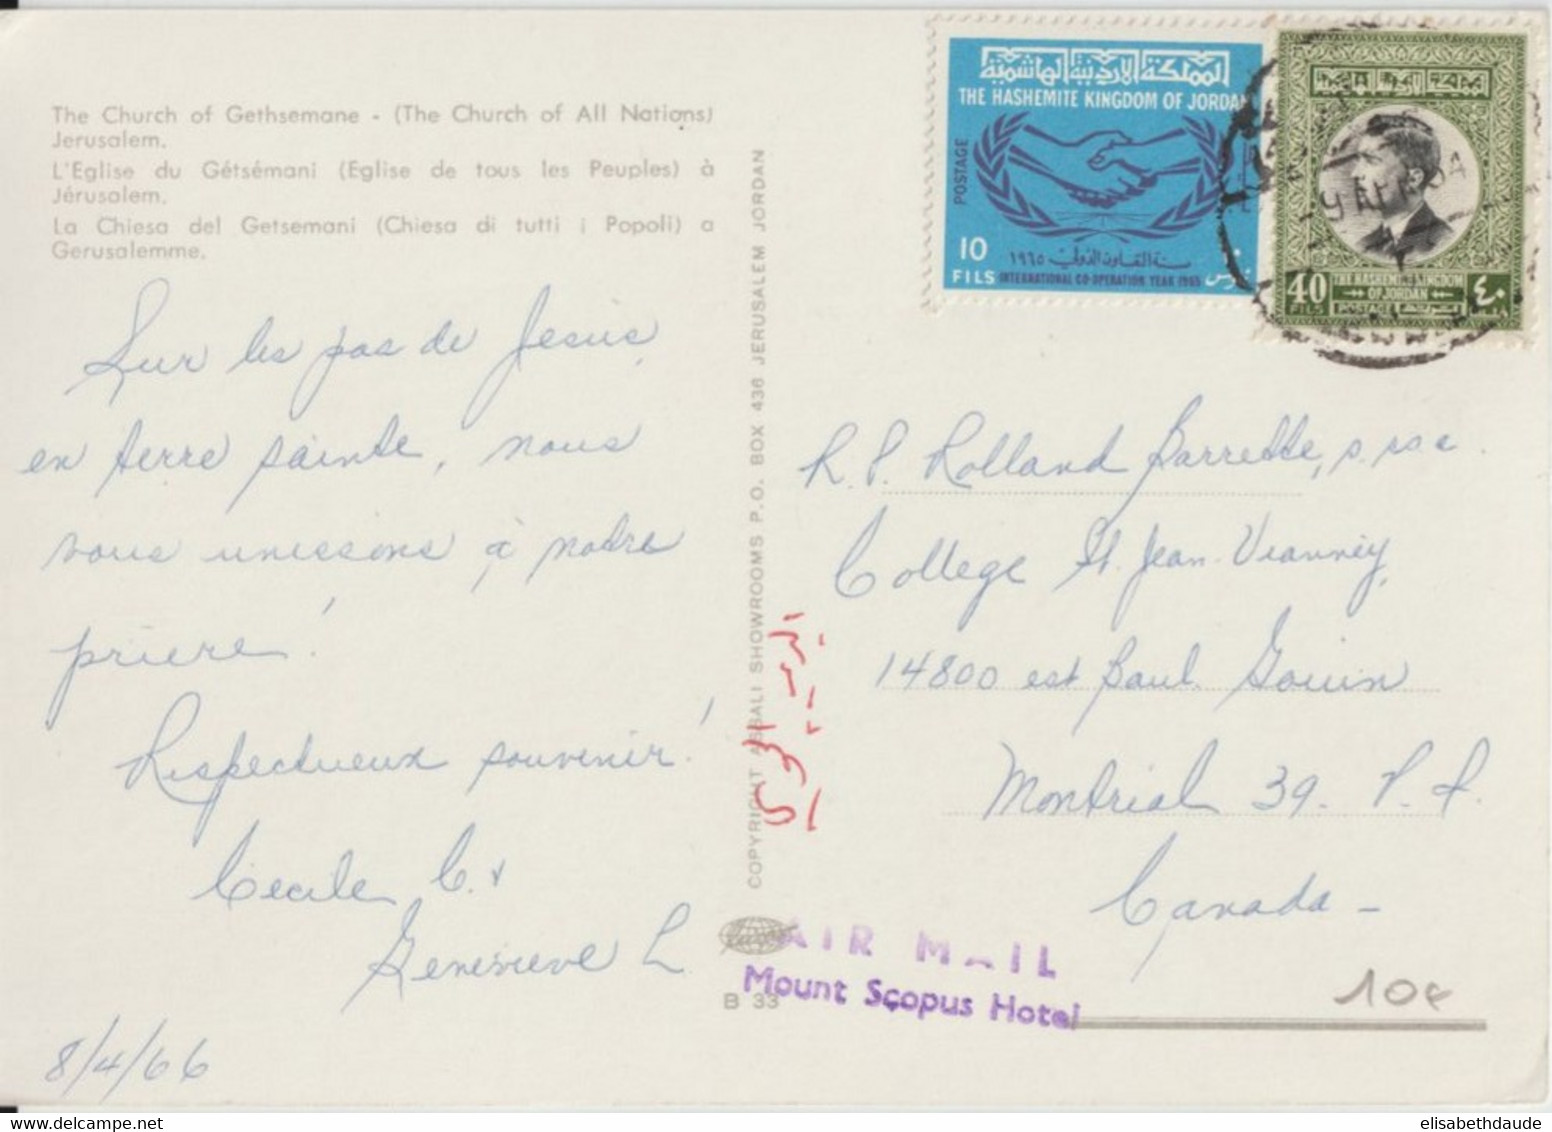 The Church of Gethsemane - (The Church of All Nations)
Jerusalem.
L'Eglise du Gétsémani (Eglise de tous les Peuples) à
Jérusalem.
La Chiesa del Getsemani (Chiesa di tutti i Popoli) a
Gerusalemme.
Sur les pas de Jesus,
en terre sainte, nous
vous unissons à notre
prière!
Respectueux souvenir!
Cecile C. &
Genevieve L.
8/4/66
COPYRIGHT ASSALI SHOWROOMS P.O. BOX 436 JERUSALEM JORDAN
B 33
المملكة الاردنية الهاشمية
THE HASHEMITE KINGDOM OF JORDAN
POSTAGE
10
FILS
سنة التعاون الدولي ١٩٦٥
INTERNATIONAL CO-OPERATION YEAR 1965
المملكة الاردنية الهاشمية
40
FILS
THE HASHEMITE KINGDOM
OF JORDAN
POSTAGE
٤٠
R. P. Rolland Barrette, p.s.s.c.
College St. Jean-Vianney,
14800 est Paul Gouin
Montréal 39. P. Q.
Canada -
AIR MAIL
Mount Scopus Hotel
10€
elisabethdaude